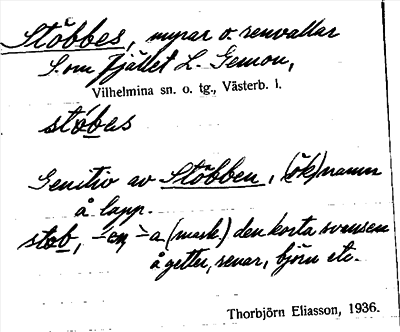 Stöbbes, myrar o. renvallar
S. om fjället L. Gemon,
Vilhelmina sn. o. tg., Västerb. l.
stó̱bas
Genitiv av Stöbben, (ök)namn
å lapp.
stob, -en, -a (mask.) den korta svansen
å getter, renar, björn etc.
Thorbjörn Eliasson, 1936.